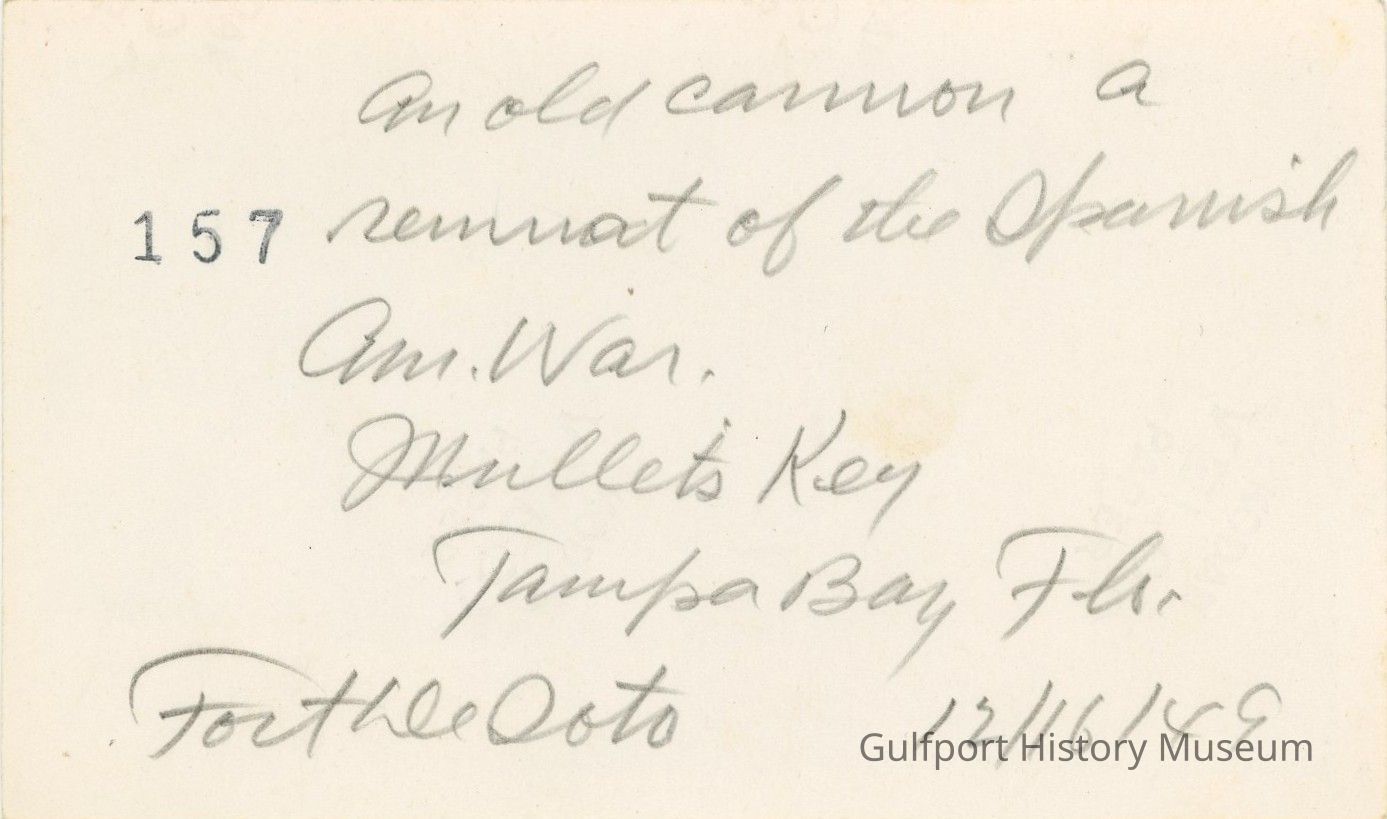 An old cannon a
157 remnat of the Spanish
Am. War.
Mullets Key
Tampa Bay Fla.
Fort De Soto 12/16/49
Gulfport History Museum